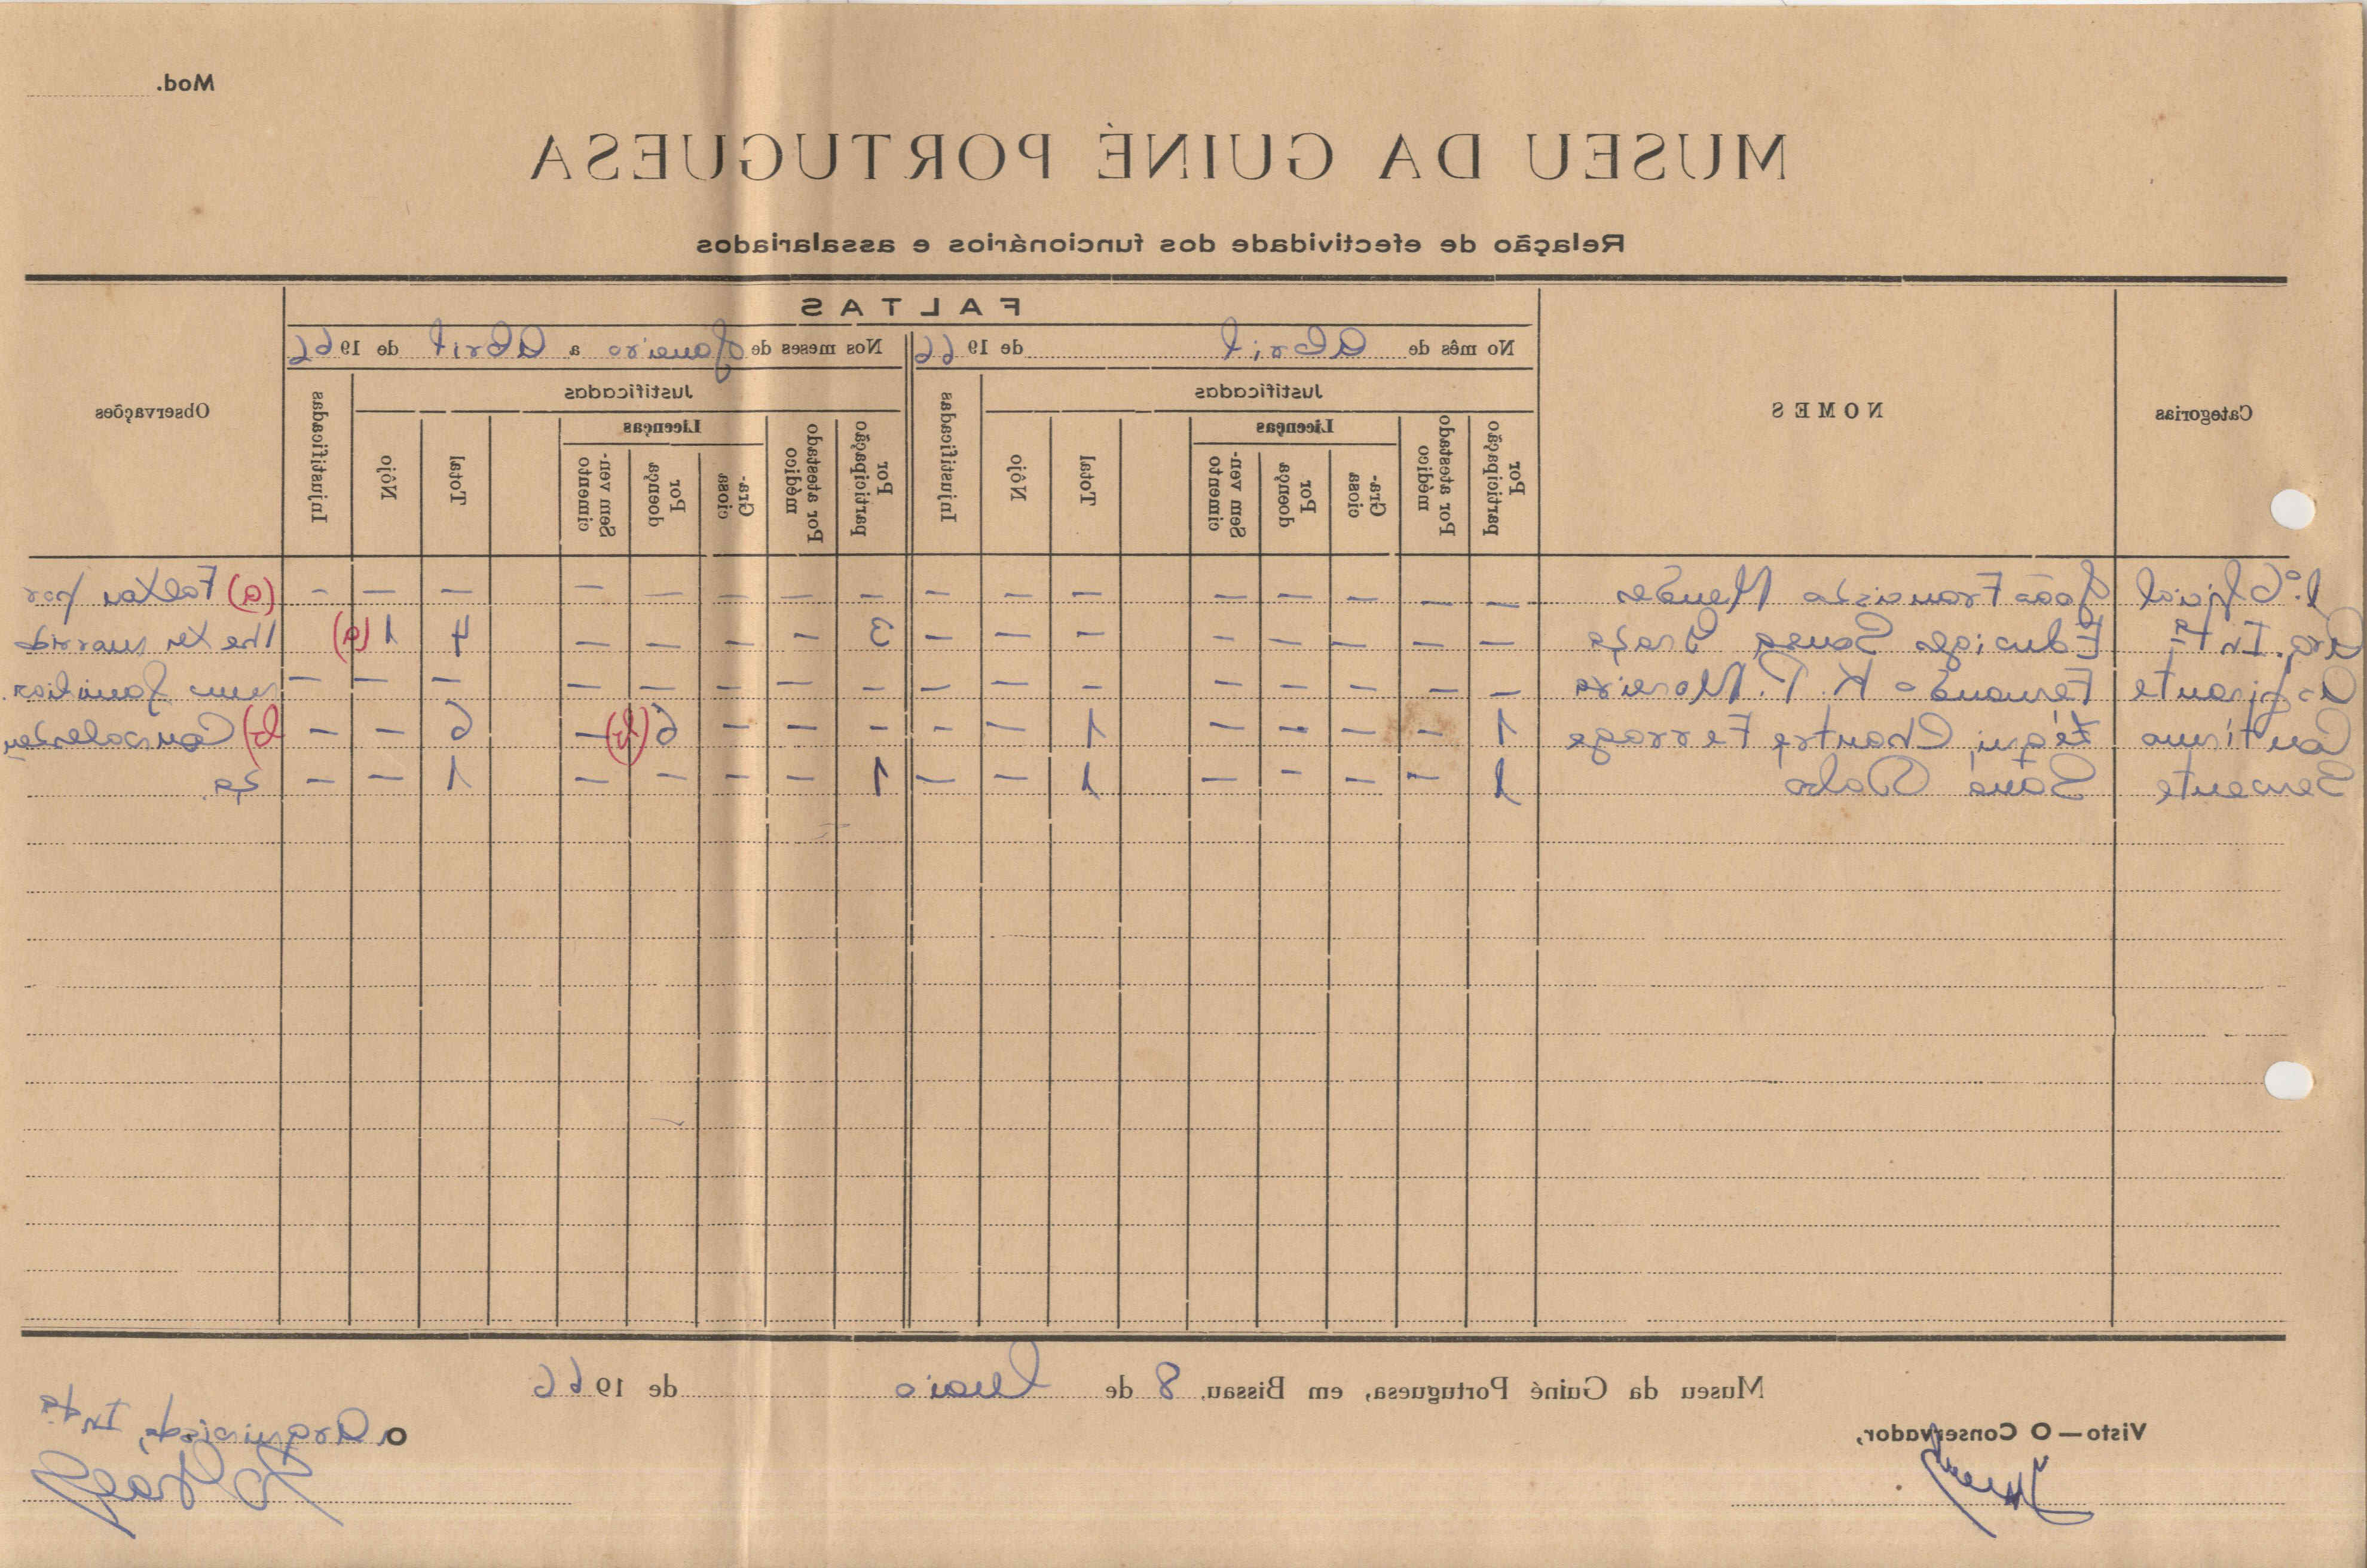 Mod.
MUSEU DA GUINÉ PORTUGUESA
Relação de efectividade dos funcionários e assalariados
Categorias
NOMES
FALTAS
Observações
No mês de Abril de 1966
Nos meses de Janeiro a Abril de 1966
Justificadas
Injustificadas
Justificadas
Injustificadas
Por participação
Por atestado médico
Licenças
Graciosa
Por doença
Sem vencimento
Total
Nôjo
Por participação
Por atestado médico
Licenças
Graciosa
Por doença
Sem vencimento
Total
Nôjo
1.º Oficial João Francisco Mendes — — — — — — — — — — — — — — — — (a) Faltar por
Arq. Intª Eduiges Sousa Graça — — — — — — — — 3 — — — — 4 1 (a) — lhe ter morrido
Aspirante Fernando K. P. Moreira — — — — — — — — — — — — — — — — num familiar.
Contínua Chantre Ferrage 1 — — — — 1 — — — — — 6 (b) — 6 — — b) Convalescen
Servente Sana Balde 1 — — — — 1 — — 1 — — — — 1 — — ça.
Museu da Guiné Portuguesa, em Bissau, 8 de Maio de 1966
Visto—O Conservador,
O Arquivista, Intª